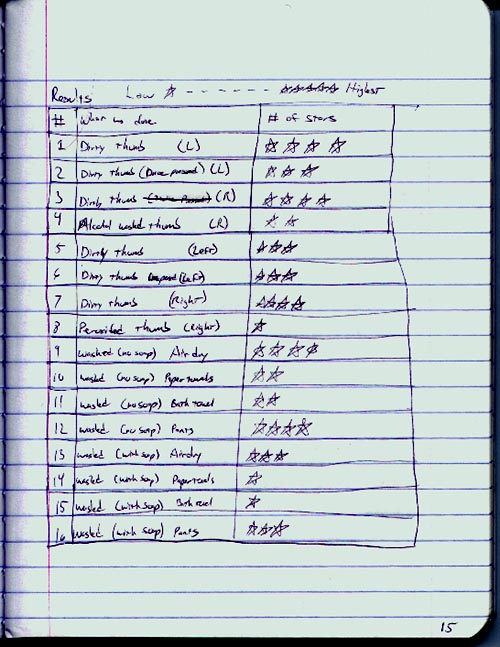 Results Low ☆ - - - - - - ☆☆☆☆☆ Highest
# What was done # of stars
1 Dirty thumb (L) ☆ ☆ ☆ ☆
2 Dirty thumb (Once passed) (L) ☆ ☆ ☆
3 Dirty thumb (R) ☆ ☆ ☆ ☆
4 Alcohol washed thumb (R) ☆ ☆
5 Dirty thumb (Left) ☆☆☆
6 Dirty thumb (Left) ☆☆☆
7 Dirty thumb (Right) ☆☆☆☆
8 Peroxided thumb (Right) ☆
9 washed (no soap) Air dry ☆☆☆☆
10 washed (no soap) Paper towels ☆☆
11 washed (no soap) Bath towel ☆☆
12 washed (no soap) Pants ☆☆☆☆
13 washed (with soap) Air dry ☆☆☆
14 washed (with soap) Paper towels ☆
15 washed (with soap) Bath towel ☆
16 washed (with soap) Pants ☆☆☆
15